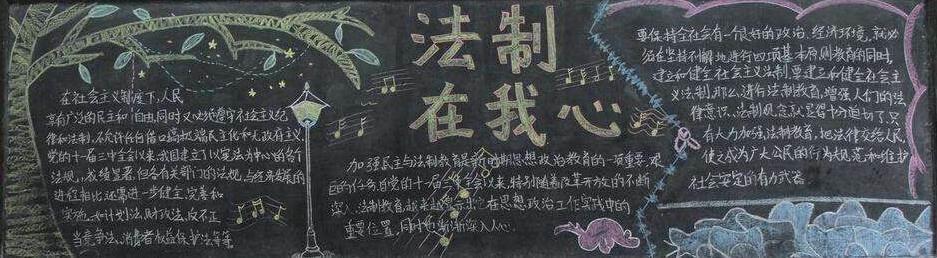 法制
在我心
在社会主义制度下,人民
享有广泛的民主和自由,同时又必须遵守社会主义纪
律和法制,不允许任何借口搞极端民主化和无政府主义
党的十一届三中全会以来,我国建立了以宪法为中心的各个
法规,成绩显著,但各有关部门的法规,与经济发展的
进程相比还需进一步健全,完善和
实施,如计划法,财政法,反不正
当竞争法、消费者权益保护法等等。
加强民主与法制教育是新时期思想政治教育的一项重要,艰
巨的任务自党的十一届三中全会以来,特别随着改革开放的不断
深入,法制教育越来越显示出它在思想政治工作实践中的
重要位置,同时也渐渐深入人心.
要保持全社会有一个良好的政治,经济环境,就必
须在坚持不懈地进行四项基本原则教育的同时,
建立和健全社会主义法制.要建立和健全社会主
义法制,那么,进行法制教育,增强人们的法
律意识,法制观念就显得十分迫切了.只
有大力加强法制教育,把法律交给人民,
使之成为广大公民的行为规范和维护
社会安定的有力武器.